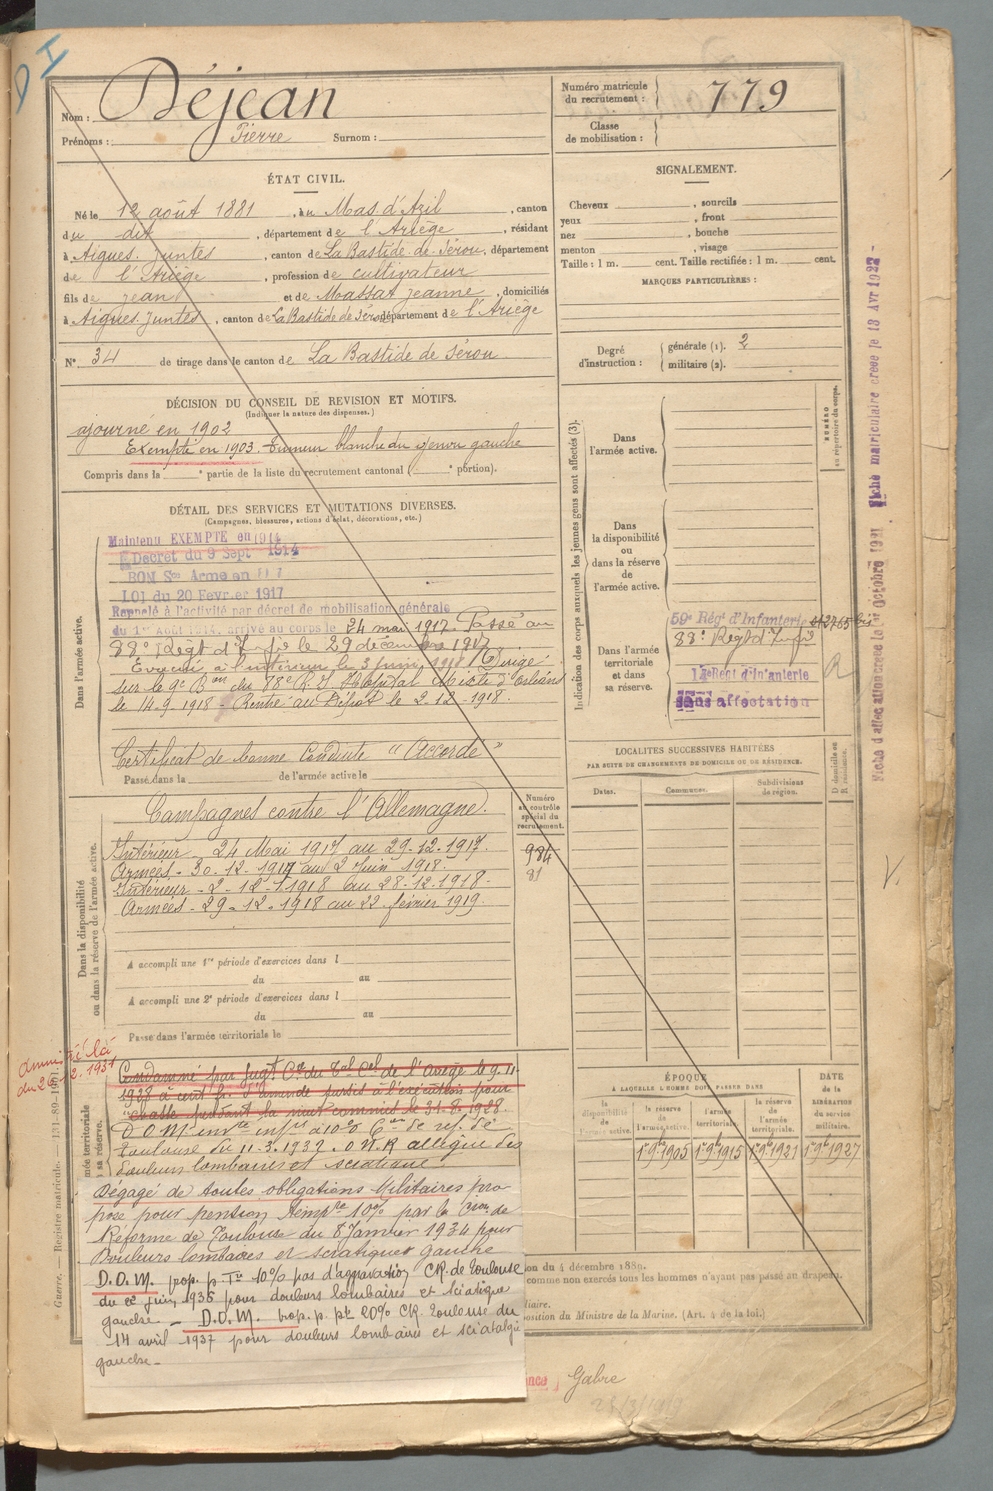 Nom : Déjean
Prénoms : Pierre Surnom :
Numéro matricule du recrutement : 779
Classe de mobilisation :
ÉTAT CIVIL.
Né le 12 août 1881, au Mas d'Azil, canton
du dit, département de l'Ariège, résidant
à Aigues. Juntes, canton de La Bastide-de-Sérou, département
de l'Ariège, profession de cultivateur
fils de Jean et de Massat Jeanne, domiciliés
à Aigues. Juntes, canton de La Bastide de Sérou département de l'Ariège
N° 34 de tirage dans le canton de La Bastide de Sérou
SIGNALEMENT.
Cheveux , sourcils
yeux , front
nez , bouche
menton , visage
Taille : 1 m. cent. Taille rectifiée : 1 m. cent.
MARQUES PARTICULIÈRES :
Degré d'instruction : générale (1). 2
militaire (2).
DÉCISION DU CONSEIL DE REVISION ET MOTIFS.
(Indiquer la nature des dispenses.)
ajourné en 1902
Exempté en 1903. Tumeur blanche du genou gauche
Compris dans la e partie de la liste du recrutement cantonal ( e portion).
DÉTAIL DES SERVICES ET MUTATIONS DIVERSES.
(Campagnes, blessures, actions d'éclat, décorations, etc.)
Dans l'armée active.
Maintenu EXEMPTÉ en 1914
Décret du 9 Sept 1914
BON Son Armé en
LOI du 20 Février 1917
Rappelé à l'activité par décret de mobilisation générale
du 1er Août 1914. arrivé au corps le 24 mai 1917. Passé au
88e Régt d'Infie le 29 décembre 1917
Evacué à l'intérieur le 3 juin 1918 Dirigé
sur le 9e Bon du 78e R.I Hôpital Mixte d'Orléans
le 14-9-1918 - Rentré au Dépôt le 2-12-1918.
Certificat de bonne Conduite "Accordé"
Passé dans la de l'armée active le
Dans la disponibilité ou dans la réserve de l'armée active.
Campagnes contre l'Allemagne.
Intérieur - 24 Mai 1917 au 29.12.1917.
Armées - 30.12.1917 au 2 Juin 1918.
Intérieur - 2-12-1918 au 28-12-1918-
Armées - 29-12-1918 au 22 février 1919.
Numéro au contrôle spécial du recrutement.
984
81
A accompli une 1re période d'exercices dans l
du au
A accompli une 2e période d'exercices dans l
du au
Passé dans l'armée territoriale le
Indication des corps auxquels les jeunes gens sont affectés (3).
NUMÉRO au répertoire du corps.
Dans l'armée active.
Dans la disponibilité ou dans la réserve de l'armée active.
Dans l'armée territoriale et dans sa réserve.
59e Régt d'Infanterie
88e Régt d'Infie
Régt d'Infanterie
Sans affectation
LOCALITÉS SUCCESSIVES HABITÉES
PAR SUITE DE CHANGEMENTS DE DOMICILE OU DE RÉSIDENCE.
Dates. Communes. Subdivisions de région. D domicile ou R résidence.
ÉPOQUE
À LAQUELLE L'HOMME DOIT PASSER DANS
la disponibilité de l'armée active. la réserve de l'armée active. l'armée territoriale. la réserve de l'armée territoriale.
DATE de la LIBÉRATION du service militaire.
1er 9bre 1905 1er 9bre 1915 1er 9bre 1921 1er 9bre 1927
Fiche d'affectation créée le 1er Octobre 1921 Fiche matriculaire créée le 13 Avr 1927 -
V.
Condamné par jugt Cre du Tal Cel de l'Ariège le 9.11
1928 à cent fr. d'amende sursis à l'exécution pour
"chasse pendant la nuit commis le 31-8-1928.
D.O.M. invte infre à 10% Con de réf. de
Toulouse du 11-3-1932. O.N.R allègue des
douleurs lombaires et sciatique.
Dégagé de toutes obligations Militaires pro
posé pour pension temp 10% par la Con de
Réforme de Toulouse du 8 Janvier 1934 pour
Douleurs lombaires et sciatique gauche
D.O.M. prop. p Tre 10% pas d'aggravation CR. de Toulouse
du 22 juin 1935 pour douleurs lombaires et sciatique
gauche - D.O.M. prop. p. pte 20% CR. Toulouse du
14 avril 1937 pour douleurs lombaires et sciatalgie
gauche -
on du 4 décembre 1889.
comme non exercés tous les hommes n'ayant pas passé au drapeau.
liaire.
position du Ministre de la Marine. (Art. 4 de la loi.)
Gabre
Guerre. — Registre matricule. — 131-89-